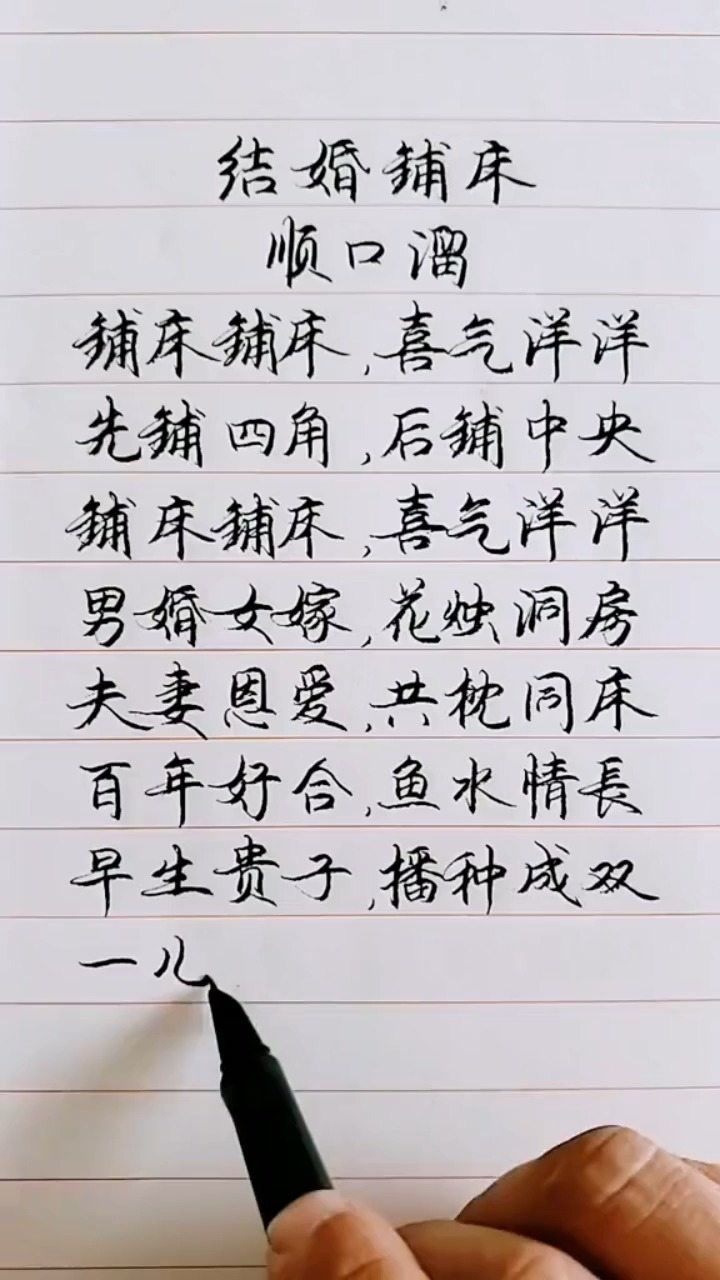 结婚鋪床
顺口溜
鋪床鋪床,喜气洋洋
先鋪四角,后鋪中央
鋪床鋪床,喜气洋洋
男婚女嫁,花烛洞房
夫妻恩爱,共枕同床
百年好合,鱼水情長
早生贵子,播种成双
一儿